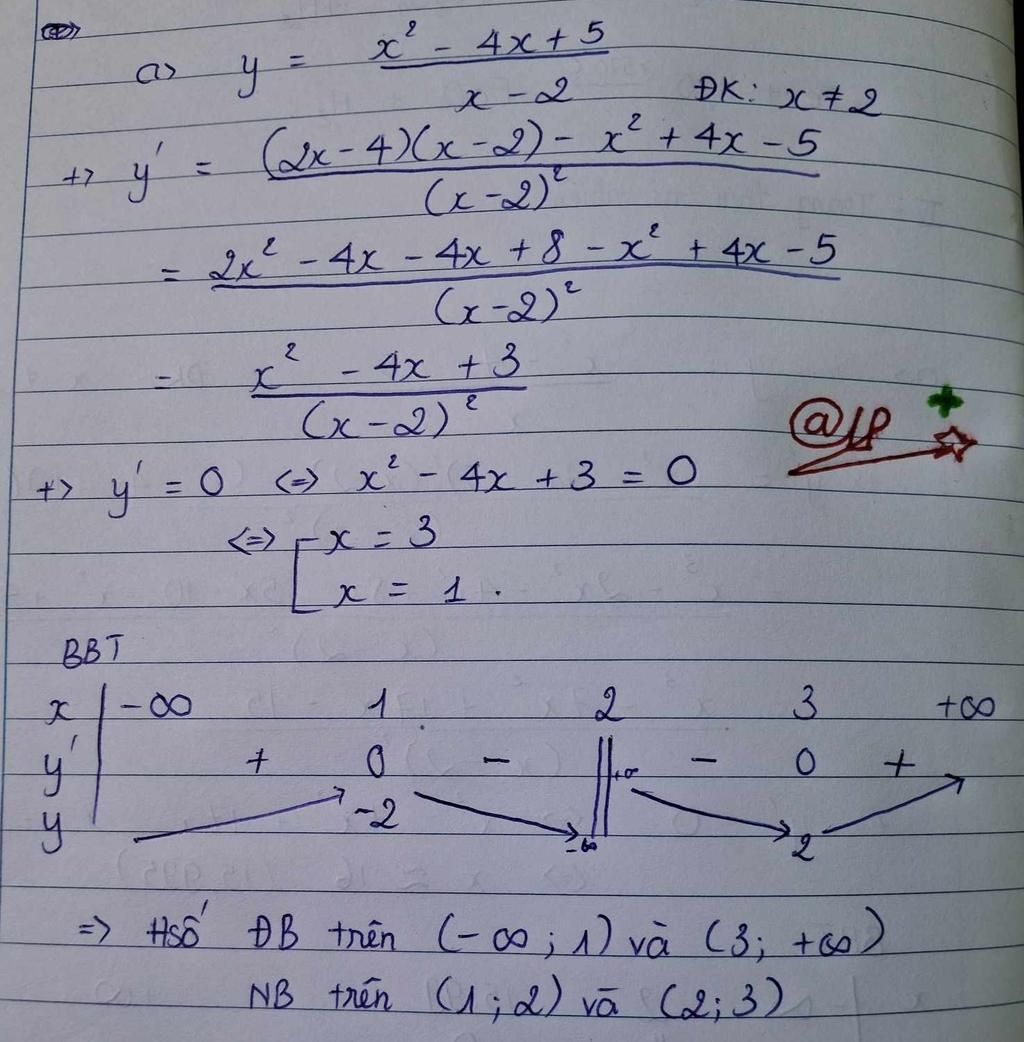 a> y = (x² - 4x + 5)/(x - 2) ĐK: x ≠ 2
+> y' = ((2x - 4)(x - 2) - x² + 4x - 5)/(x - 2)²
= (2x² - 4x - 4x + 8 - x² + 4x - 5)/(x - 2)²
= (x² - 4x + 3)/(x - 2)²
@JP
+> y' = 0 <=> x² - 4x + 3 = 0
<=> [ x = 3
x = 1.
BBT
x | -∞ 1 2 3 +∞
y' + 0 - || - 0 +
y -2 -∞ || +∞ 2
=> Hsố ĐB trên (-∞; 1) và (3; +∞)
NB trên (1; 2) và (2; 3)